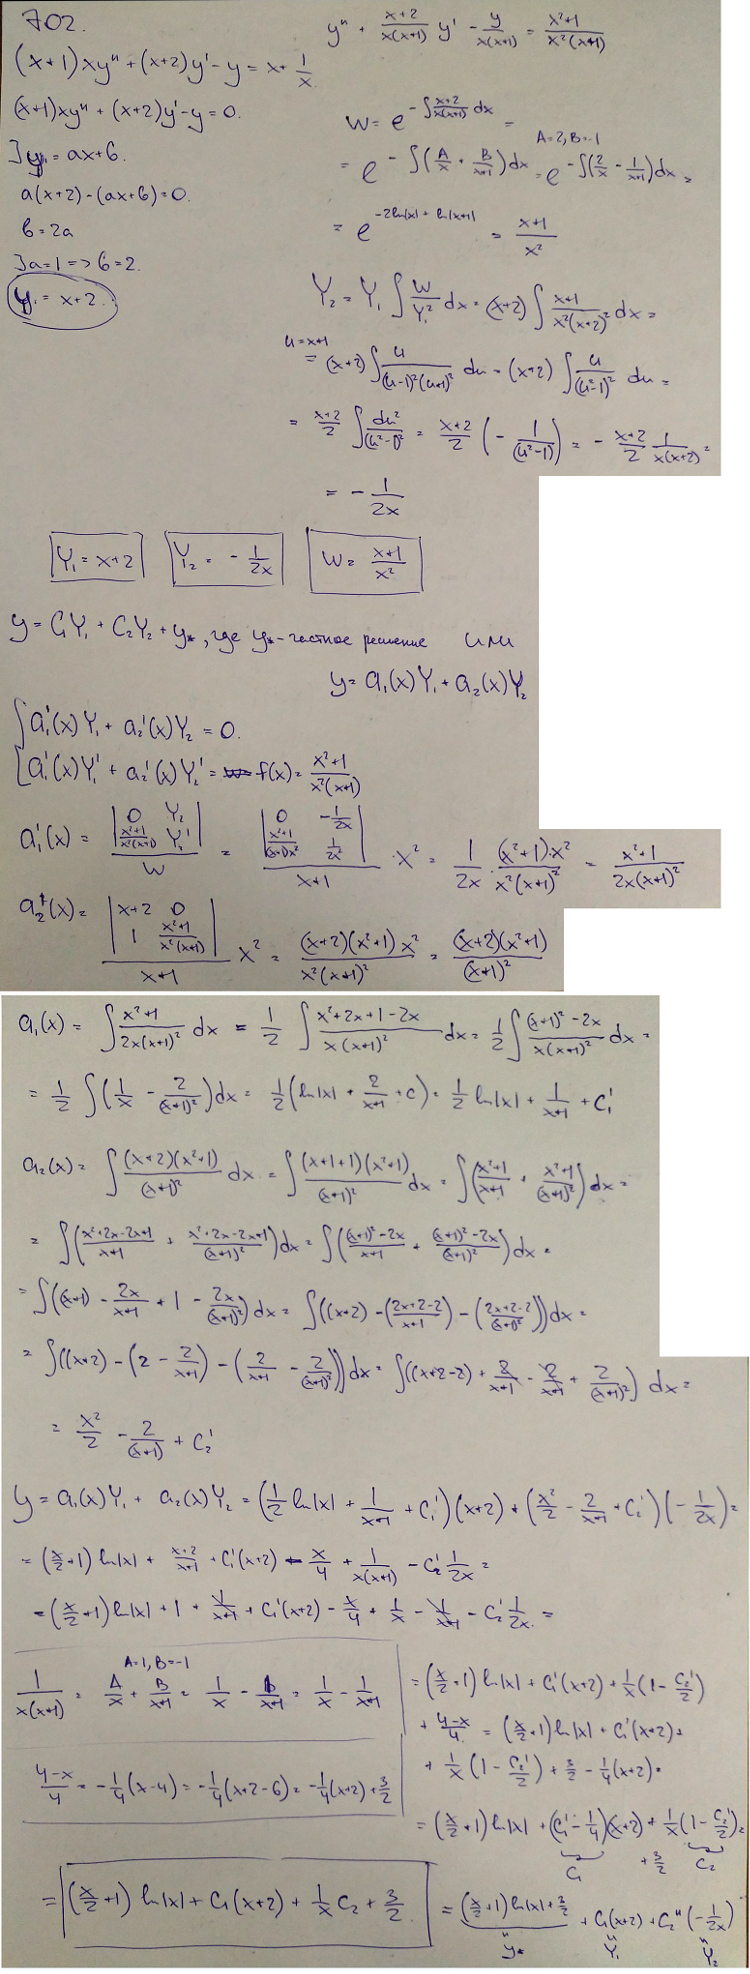 702.
(x+1)xy'' + (x+2)y' - y = x + 1/x
(x+1)xy'' + (x+2)y' - y = 0.
] y₁ = ax+b.
a(x+2) - (ax+b) = 0.
b = 2a
] a=1 => b=2.
y₁ = x+2.
y'' + (x+2)/(x(x+1)) y' - y/(x(x+1)) = (x²+1)/(x²(x+1))
W = e^(-∫ (x+2)/(x(x+1)) dx) =
A=2, B=-1
= e^(-∫(A/x + B/(x+1))dx) = e^(-∫(2/x - 1/(x+1))dx) =
= e^(-2ln|x| + ln|x+1|) = (x+1)/x²
Y₂ = Y₁ ∫ W/Y₁² dx = (x+2) ∫ (x+1)/(x²(x+2)²) dx =
u=x+1
= (x+2) ∫ u/((u-1)²(u+1)²) du = (x+2) ∫ u/(u²-1)² du =
= (x+2)/2 ∫ du²/(u²-1)² = (x+2)/2 (- 1/(u²-1)) = - (x+2)/2 1/(x(x+2)) =
= - 1/(2x)
Y₁ = x+2 Y₂ = - 1/(2x) W = (x+1)/x²
y = C₁Y₁ + C₂Y₂ + y*, где y* - частное решение или
y = a₁(x)Y₁ + a₂(x)Y₂
{ a₁'(x)Y₁ + a₂'(x)Y₂ = 0.
a₁'(x)Y₁' + a₂'(x)Y₂' = f(x) = (x²+1)/(x²(x+1))
a₁'(x) = |0 Y₂; (x²+1)/(x²(x+1)) Y₂'| / W = |0 -1/(2x); (x²+1)/((x+1)x²) 1/(2x²)| / (x+1) · x² = 1/(2x) · (x²+1)·x²/(x²(x+1)²) = (x²+1)/(2x(x+1)²)
a₂'(x) = |x+2 0; 1 (x²+1)/(x²(x+1))| / (x+1) x² = (x+2)(x²+1)x²/(x²(x+1)²) = (x+2)(x²+1)/(x+1)²
a₁(x) = ∫ (x²+1)/(2x(x+1)²) dx = 1/2 ∫ (x²+2x+1-2x)/(x(x+1)²) dx = 1/2 ∫ ((x+1)²-2x)/(x(x+1)²) dx =
= 1/2 ∫ (1/x - 2/(x+1)²)dx = 1/2 (ln|x| + 2/(x+1) + C) = 1/2 ln|x| + 1/(x+1) + C₁'
a₂(x) = ∫ (x+2)(x²+1)/(x+1)² dx = ∫ (x+1+1)(x²+1)/(x+1)² dx = ∫ ((x²+1)/(x+1) + (x²+1)/(x+1)²) dx =
= ∫ ((x²+2x-2x+1)/(x+1) + (x²+2x-2x+1)/(x+1)²)dx = ∫ (((x+1)²-2x)/(x+1) + ((x+1)²-2x)/(x+1)²)dx =
= ∫ ((x+1) - 2x/(x+1) + 1 - 2x/(x+1)²)dx = ∫ ((x+2) - ((2x+2-2)/(x+1)) - ((2x+2-2)/(x+1)²))dx =
= ∫ ((x+2) - (2 - 2/(x+1)) - (2/(x+1) - 2/(x+1)²))dx = ∫ ((x+2-2) + 2/(x+1) - 2/(x+1) + 2/(x+1)²) dx =
= x²/2 - 2/(x+1) + C₂'
y = a₁(x)Y₁ + a₂(x)Y₂ = (1/2 ln|x| + 1/(x+1) + C₁')(x+2) + (x²/2 - 2/(x+1) + C₂')(- 1/(2x)) =
= (x/2+1) ln|x| + (x+2)/(x+1) + C₁'(x+2) - x/4 + 1/(x(x+1)) - C₂' 1/(2x) =
= (x/2+1) ln|x| + 1 + 1/(x+1) + C₁'(x+2) - x/4 + 1/x - 1/(x+1) - C₂' 1/(2x) =
A=1, B=-1
1/(x(x+1)) = A/x + B/(x+1) = 1/x - 1/(x+1) = 1/x - 1/(x+1)
(4-x)/4 = -1/4(x-4) = -1/4(x+2-6) = -1/4(x+2) + 3/2
= (x/2+1) ln|x| + C₁'(x+2) + 1/x(1 - C₂'/2)
+ (4-x)/4 = (x/2+1)ln|x| + C₁'(x+2) +
+ 1/x (1 - C₂'/2) + 3/2 - 1/4(x+2) =
= (x/2+1) ln|x| + (C₁' - 1/4)(x+2) + 1/x(1 - C₂'/2) +
C₁ + 3/2 C₂
= (x/2+1) ln|x| + C₁(x+2) + 1/x C₂ + 3/2.
= (x/2+1) ln|x| + 3/2 + C₁(x+2) + C₂''(- 1/(2x))
y* Y₁ Y₂